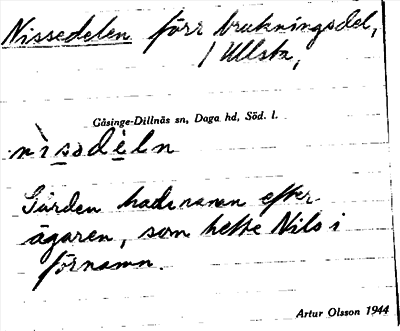 Nissedelen förr brukningsdel,
/ Ullsta,
Gåsinge-Dillnäs sn, Daga hd, Söd. l.
nìsdèln
Gården hade namn efter
ägaren, som hette Nils i
förnamn.
Artur Olsson 1944